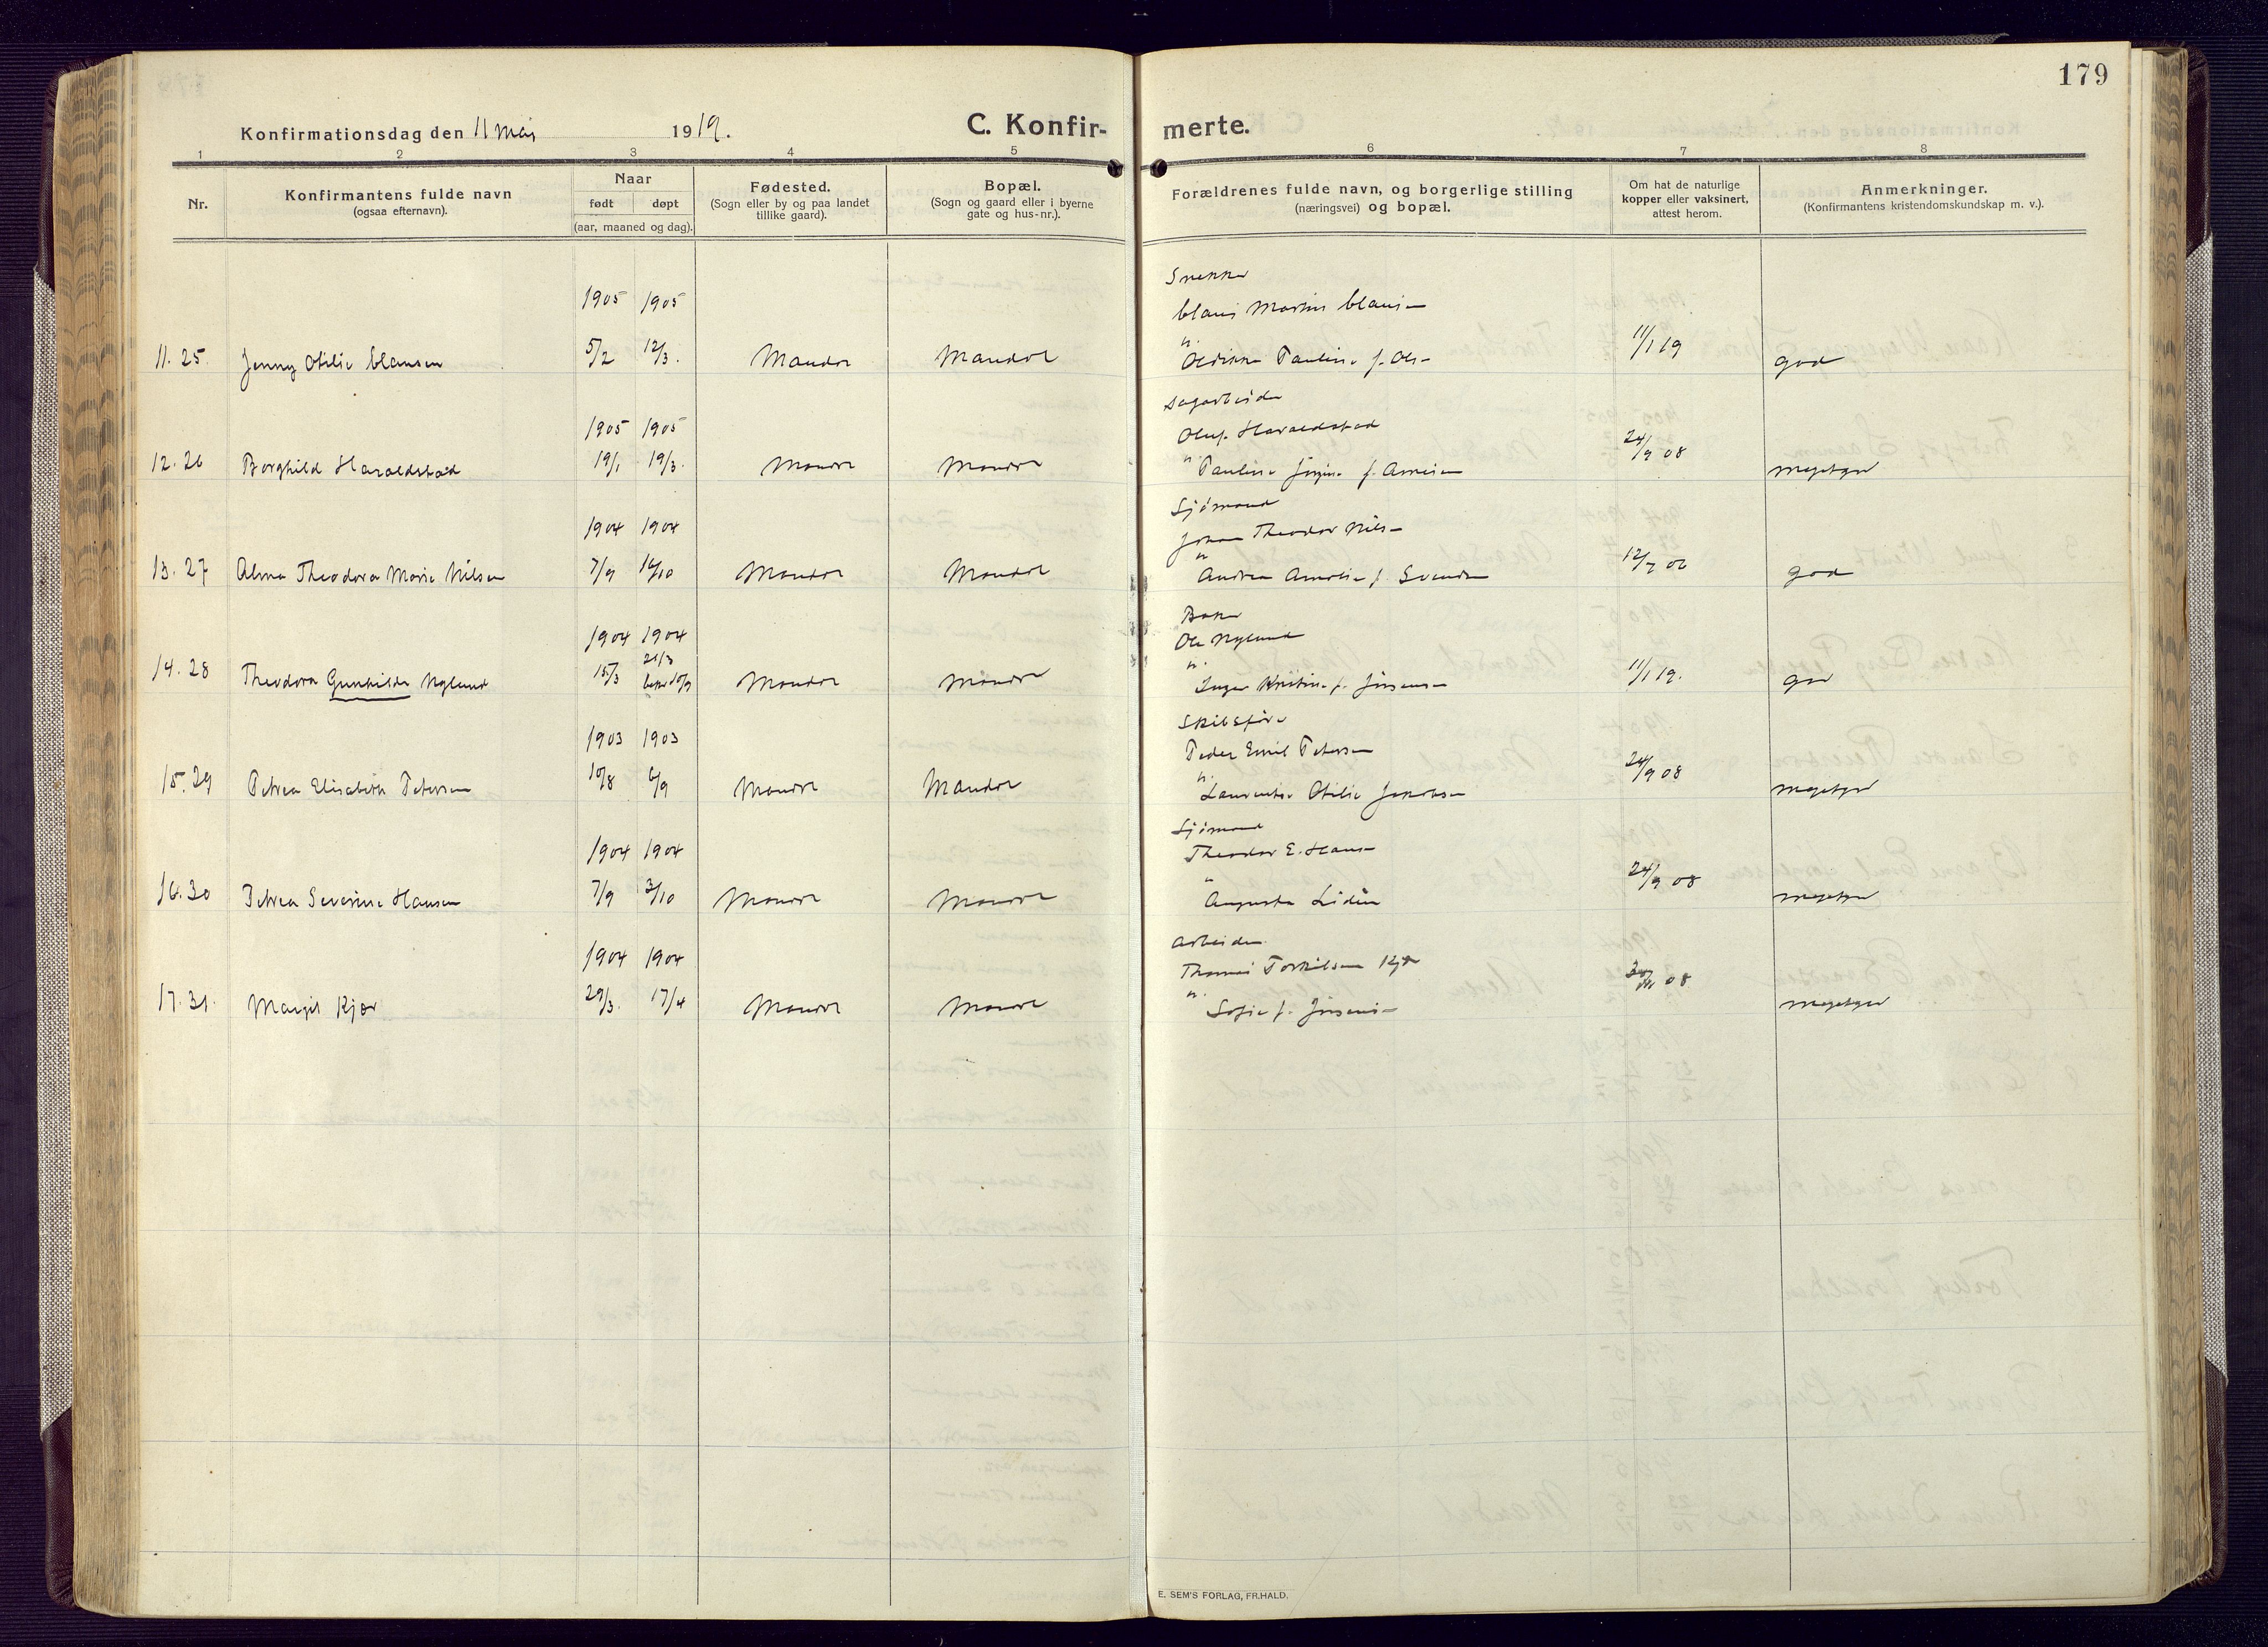 179
Konfirmationsdag den 11 Mai 1919.
C. Konfirmerte.
1 2 3 4 5 6 7 8
Nr.
Konfirmantens fulde navn
(ogsaa efternavn).
Naar
født døpt
(aar, maaned og dag).
Fødested.
(Sogn eller by og paa landet
tillike gaard).
Bopæl.
(Sogn og gaard eller i byerne
gate og hus-nr.).
Forældrenes fulde navn, og borgerlige stilling
(næringsvei) og bopæl.
Om hat de naturlige
kopper eller vaksinert,
attest herom.
Anmerkninger.
(Konfirmantens kristendomskundskap m. v.).
Snekker
1905 1905 Claus Martin Clausen
11. 25. Jenny Otilie Clausen 5/2 12/3. Mandal Mandal Pauline f. Ols- 11/1 19 god
Sagarbeider
1905 1905 Oluf Haraldstad
12. 26 Borghild Haraldstad 19/1 19/3. Mandal Mandal " Pauline Jørgine f. Arnesen 24/9 08 megetgod
Sjømand
1904 1904 Johan Theodor Nils-
13. 27 Alma Theodora Marie Nilsen 7/9 16/10 Mandal Mandal " Andrea Amalie f. Svends- 12/7 06 god
Baker
1904 1904 Ole Nylund
14. 28 Theodora Gunhilde Nylund 15/3 21/3 Mandal Mandal " Inger Kristine f. Jørgensen 11/1 19. god
Skibsfører
1903 1903 Peder Emil Petersen
15. 29 Petrea Elisabeth Petersen 10/8 6/9 Mandal Mandal " Laurentse Otilie Jakobsen 24/9 08 megetgod
Sjømand
1904 1904 Theodor E. Hans-
16. 30 Petrea Severine Hansen 7/9 3/10 Mandal Mandal " Augusta Lidén 24/9 08 megetgod
Arbeider
1904 1904 Thomas Torkilsen Kjær
17. 31 Margit Kjær 29/3. 17/4 Mandal Mandal " Sofie f. Jørgens- 08 megetgod
E. SEM'S FORLAG, FR.HALD.